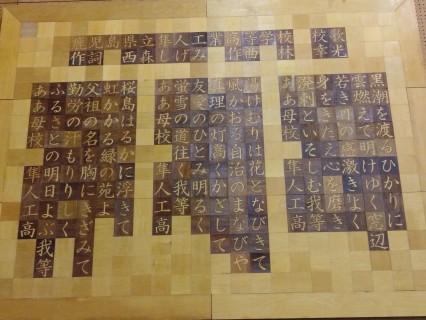 鹿児島県立隼人工業高等学校 校歌
作詞 西森しげみ 作曲 林 幸光
黒潮を渡るひかりに
雲燃えて明けゆく窓辺
若き日の感激きよく
身をきたえ心を磨き
溌剌といそしむ我等
ああ母校 隼人工高
湯けむりは花となびきて
風かおる自治のまなびや
真理の灯高くかざして
友どちのひとみ明るく
蛍雪の道往く我等
ああ母校 隼人工高
桜島はるかに浮きて
虹かかる緑の苑よ
父祖の名を胸にきざみて
勤労の汗もりりしく
ふるさとの明日よぶ我等
ああ母校 隼人工高